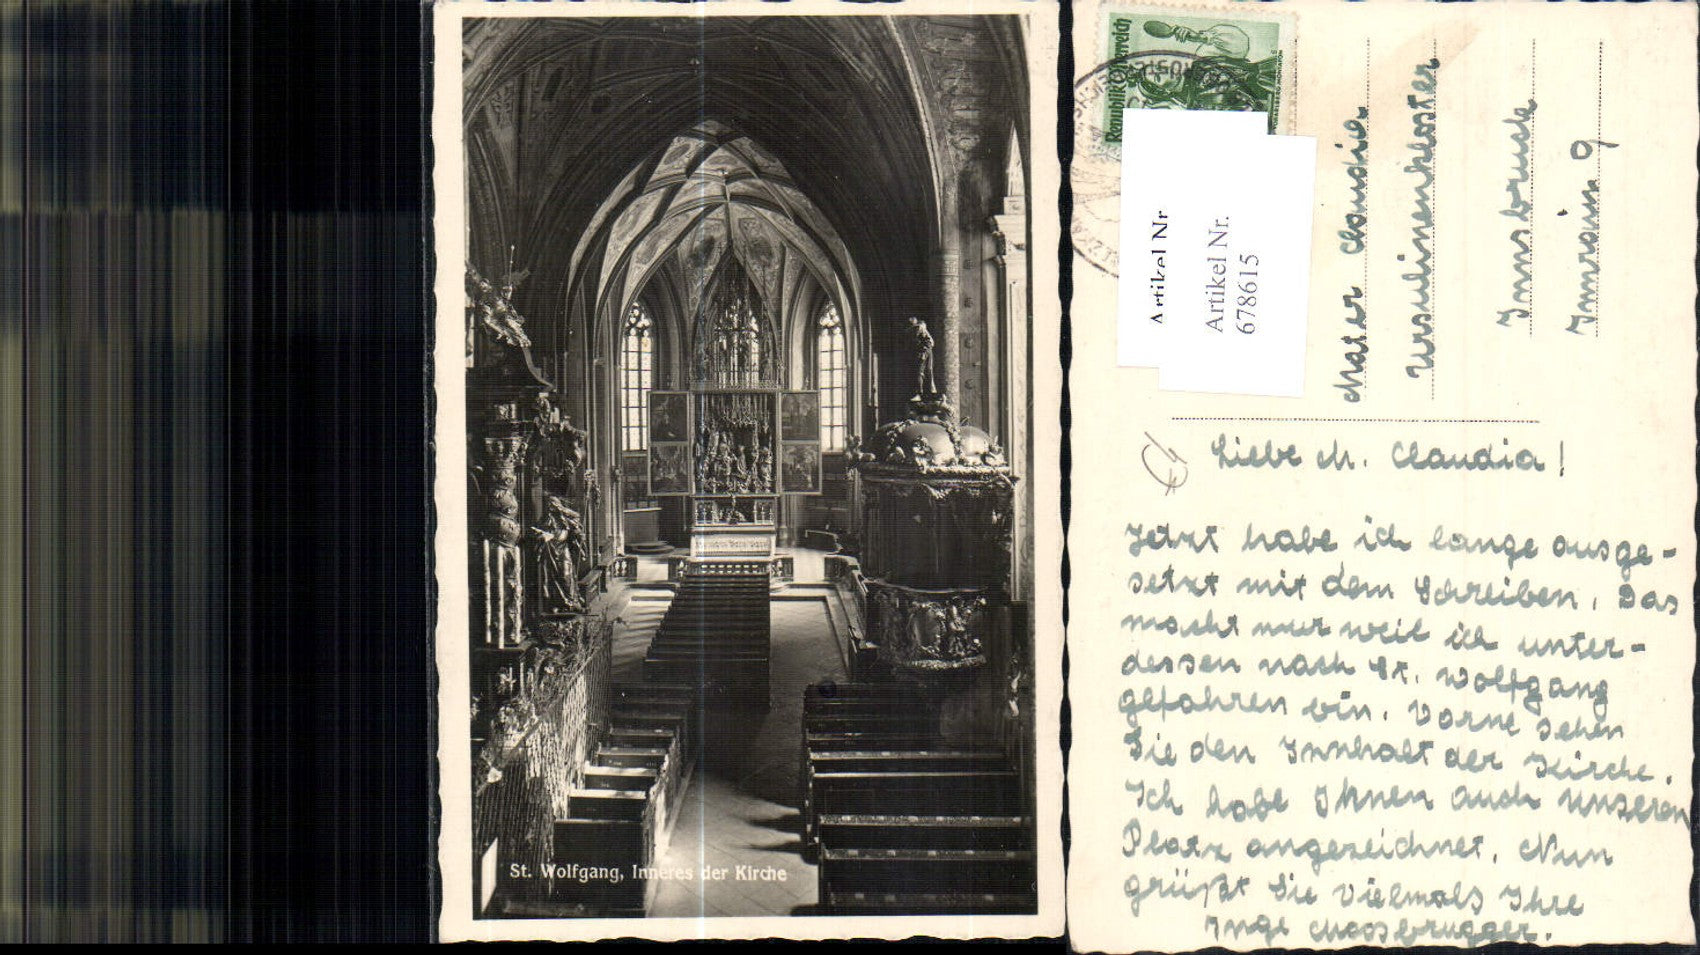 St. Wolfgang, Inneres der Kirche
Republik Österreich
Artikel Nr
Artikel Nr.
678615
Mater Claudia
Ursulinenkloster
Innsbruck
Innrain 9
Liebe M. Claudia!
Jetzt habe ich lange ausge-
setzt mit dem Schreiben. Das
macht nur weil ich unter-
dessen nach St. Wolfgang
gefahren bin. Vorne sehen
Sie den Innhalt der Kirche.
Ich habe Ihnen auch unseren
Platz angezeichnet. Nun
grüßt Sie vielmals Ihre
Inge Moosbrugger.